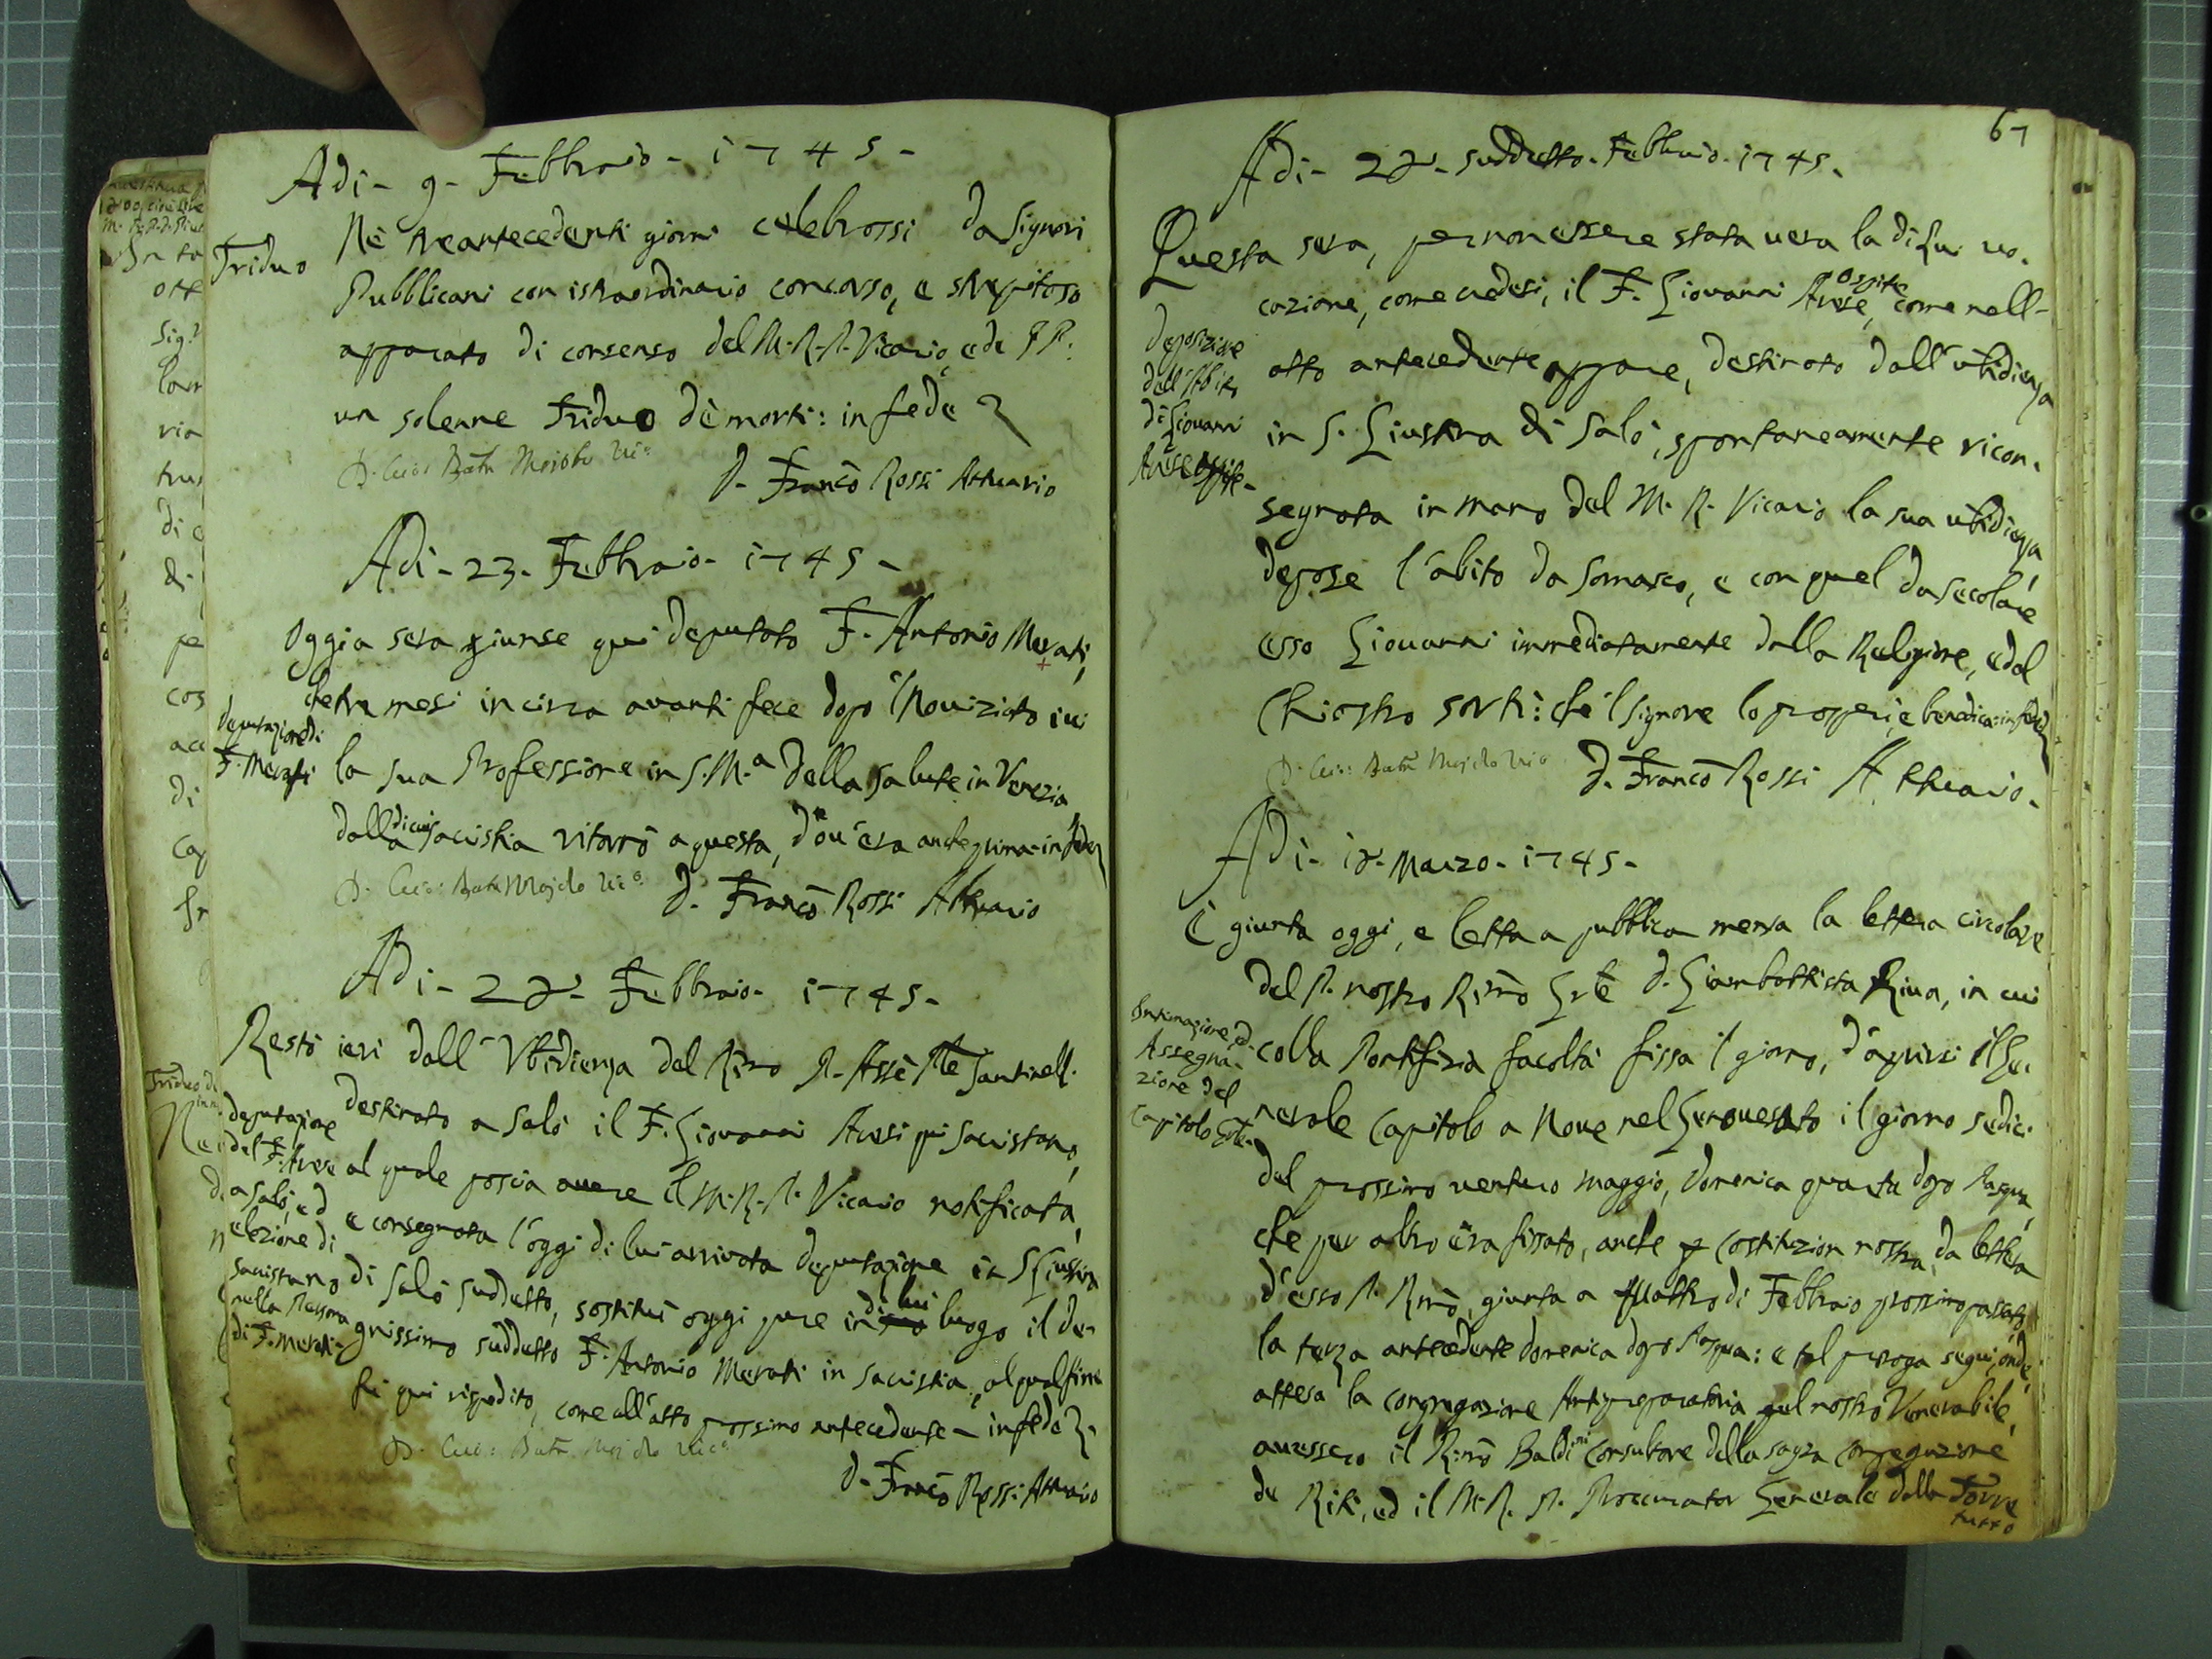 Adi - 9 - Febbraio - 1745 -
Triduo
Nè tre antecedenti giorni celebrossi da Signori
Pubblicani con istraordinario concorso, e strepitoso
apparato di consenso del M. R. P. Vicario, e de PP.
un solenne Triduo dè morti: in fede
D. Franc̄o Rossi Attuario
Adi - 23 - Febbraio - 1745 -
Oggi a sera giunse qui deputato F. Antonio Merati,
che tre mesi in circa avanti fece dopo 'l Noviziato ivi
deputazione di
F. Merati
la sua Professione in S. M.ª della Salute in Venezia
dalla di cui sacristia ritornò a questa, d'ou'era anche prima - in fede
D. Franc̄o Rossi Attuario
Adi - 28 - Febbraio - 1745 -
Restò ieri dall'Vbidienza del Rm̄o P. Santinelli
destinato a Salò il F. Giovanni Avesi qui sacristano,
al quale poscia avere il M. R. P. Vicario notificata,
e consegnata l'oggi di lui arrivata deputazione in S. Giustina
di Salò suddetto, sostituì oggi pure in di lui luogo il de-
gnissimo suddetto F. Antonio Merati in sacristia, al qual fine
fu qui rispedito, come all'atto prossimo antecedente - in fede
deputazione
del F. Avese
a Salò, ed
elezione di
sacristano
nella Persona
di F. Merati
D. Franc̄o Rossi Attuario
67
Adi - 28 - suddetto - Febbraio - 1745 -
Questa sera, per non essere stata vera la di lui vo-
cazione, come credesi, il F. Giovanni Avese Ospite, come nell-
atto antecedente appare, destinato dall'ubidienza
in S. Giustina di Salò, spontaneamente ricon-
segnata in mano del M. R. Vicario la sua ubidienza,
depose l'abito da Somasco, e con quel da secolare
esso Giovanni immediatamente dalla Religione, e dal
Chiostro sortì: che 'l Signore lo prosperi, e benedica: in fede
deposizione
dell'Abito
di Giovanni
Avese Ospite -
D. Franc̄o Rossi Attuario -
Adi - 18 - Marzo - 1745 -
È giunta oggi, e letta a pubblica mensa la lettera circolare
del P. nostro Rm̄o Gn̄le D. Giambattista Riva, in cui
colla Pontifizia facoltà fissa 'l giorno, d'aprirsi il Ge-
nerale Capitolo a Nove nel Genovesato il giorno sedici
del prossimo venturo maggio, domenica quarta dopo Pasqua,
che per altro era fissato, anche p Costituzion nostra, da lettera
d'esso P. Rm̄o, giunta a quattro di Febbraio prossimo passato,
la terza antecedente domenica dopo Pasqua: e tal proroga seguì, onde,
attesa la congregazione Antipreparatoria pel nostro Venerabile,
avessero il Rm̄o Baldini Consultore della sagra congregazione
de Riti, ed il M. R. P. Procurator Generale dalla Torre
tutto
Intimazione, ed
Assegna-
zione del
Capitolo Gn̄le -